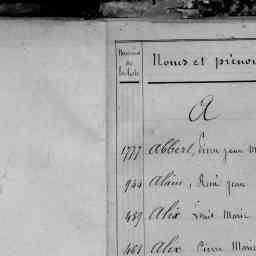 Numéros
de
Noms et prénom
A
1777 Abberl, Pierre jean M
944 Alain, René jean
459 Alix Louis Marie
461 Alix Pierre Marie